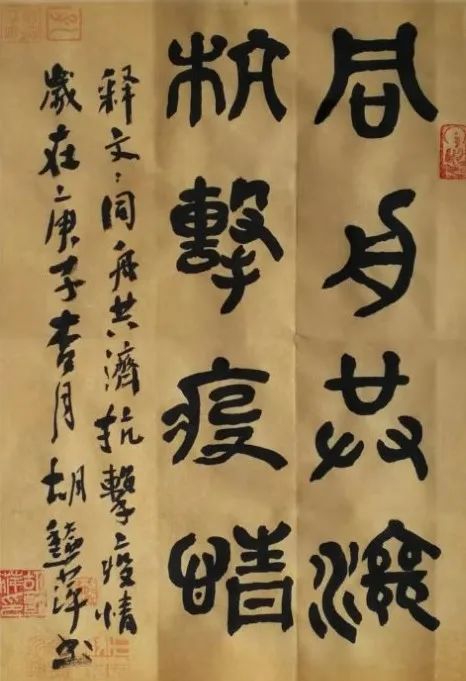 同舟共濟
抗擊疫情
释文：同舟共濟抗擊疫情
歲在庚子杏月胡萍书